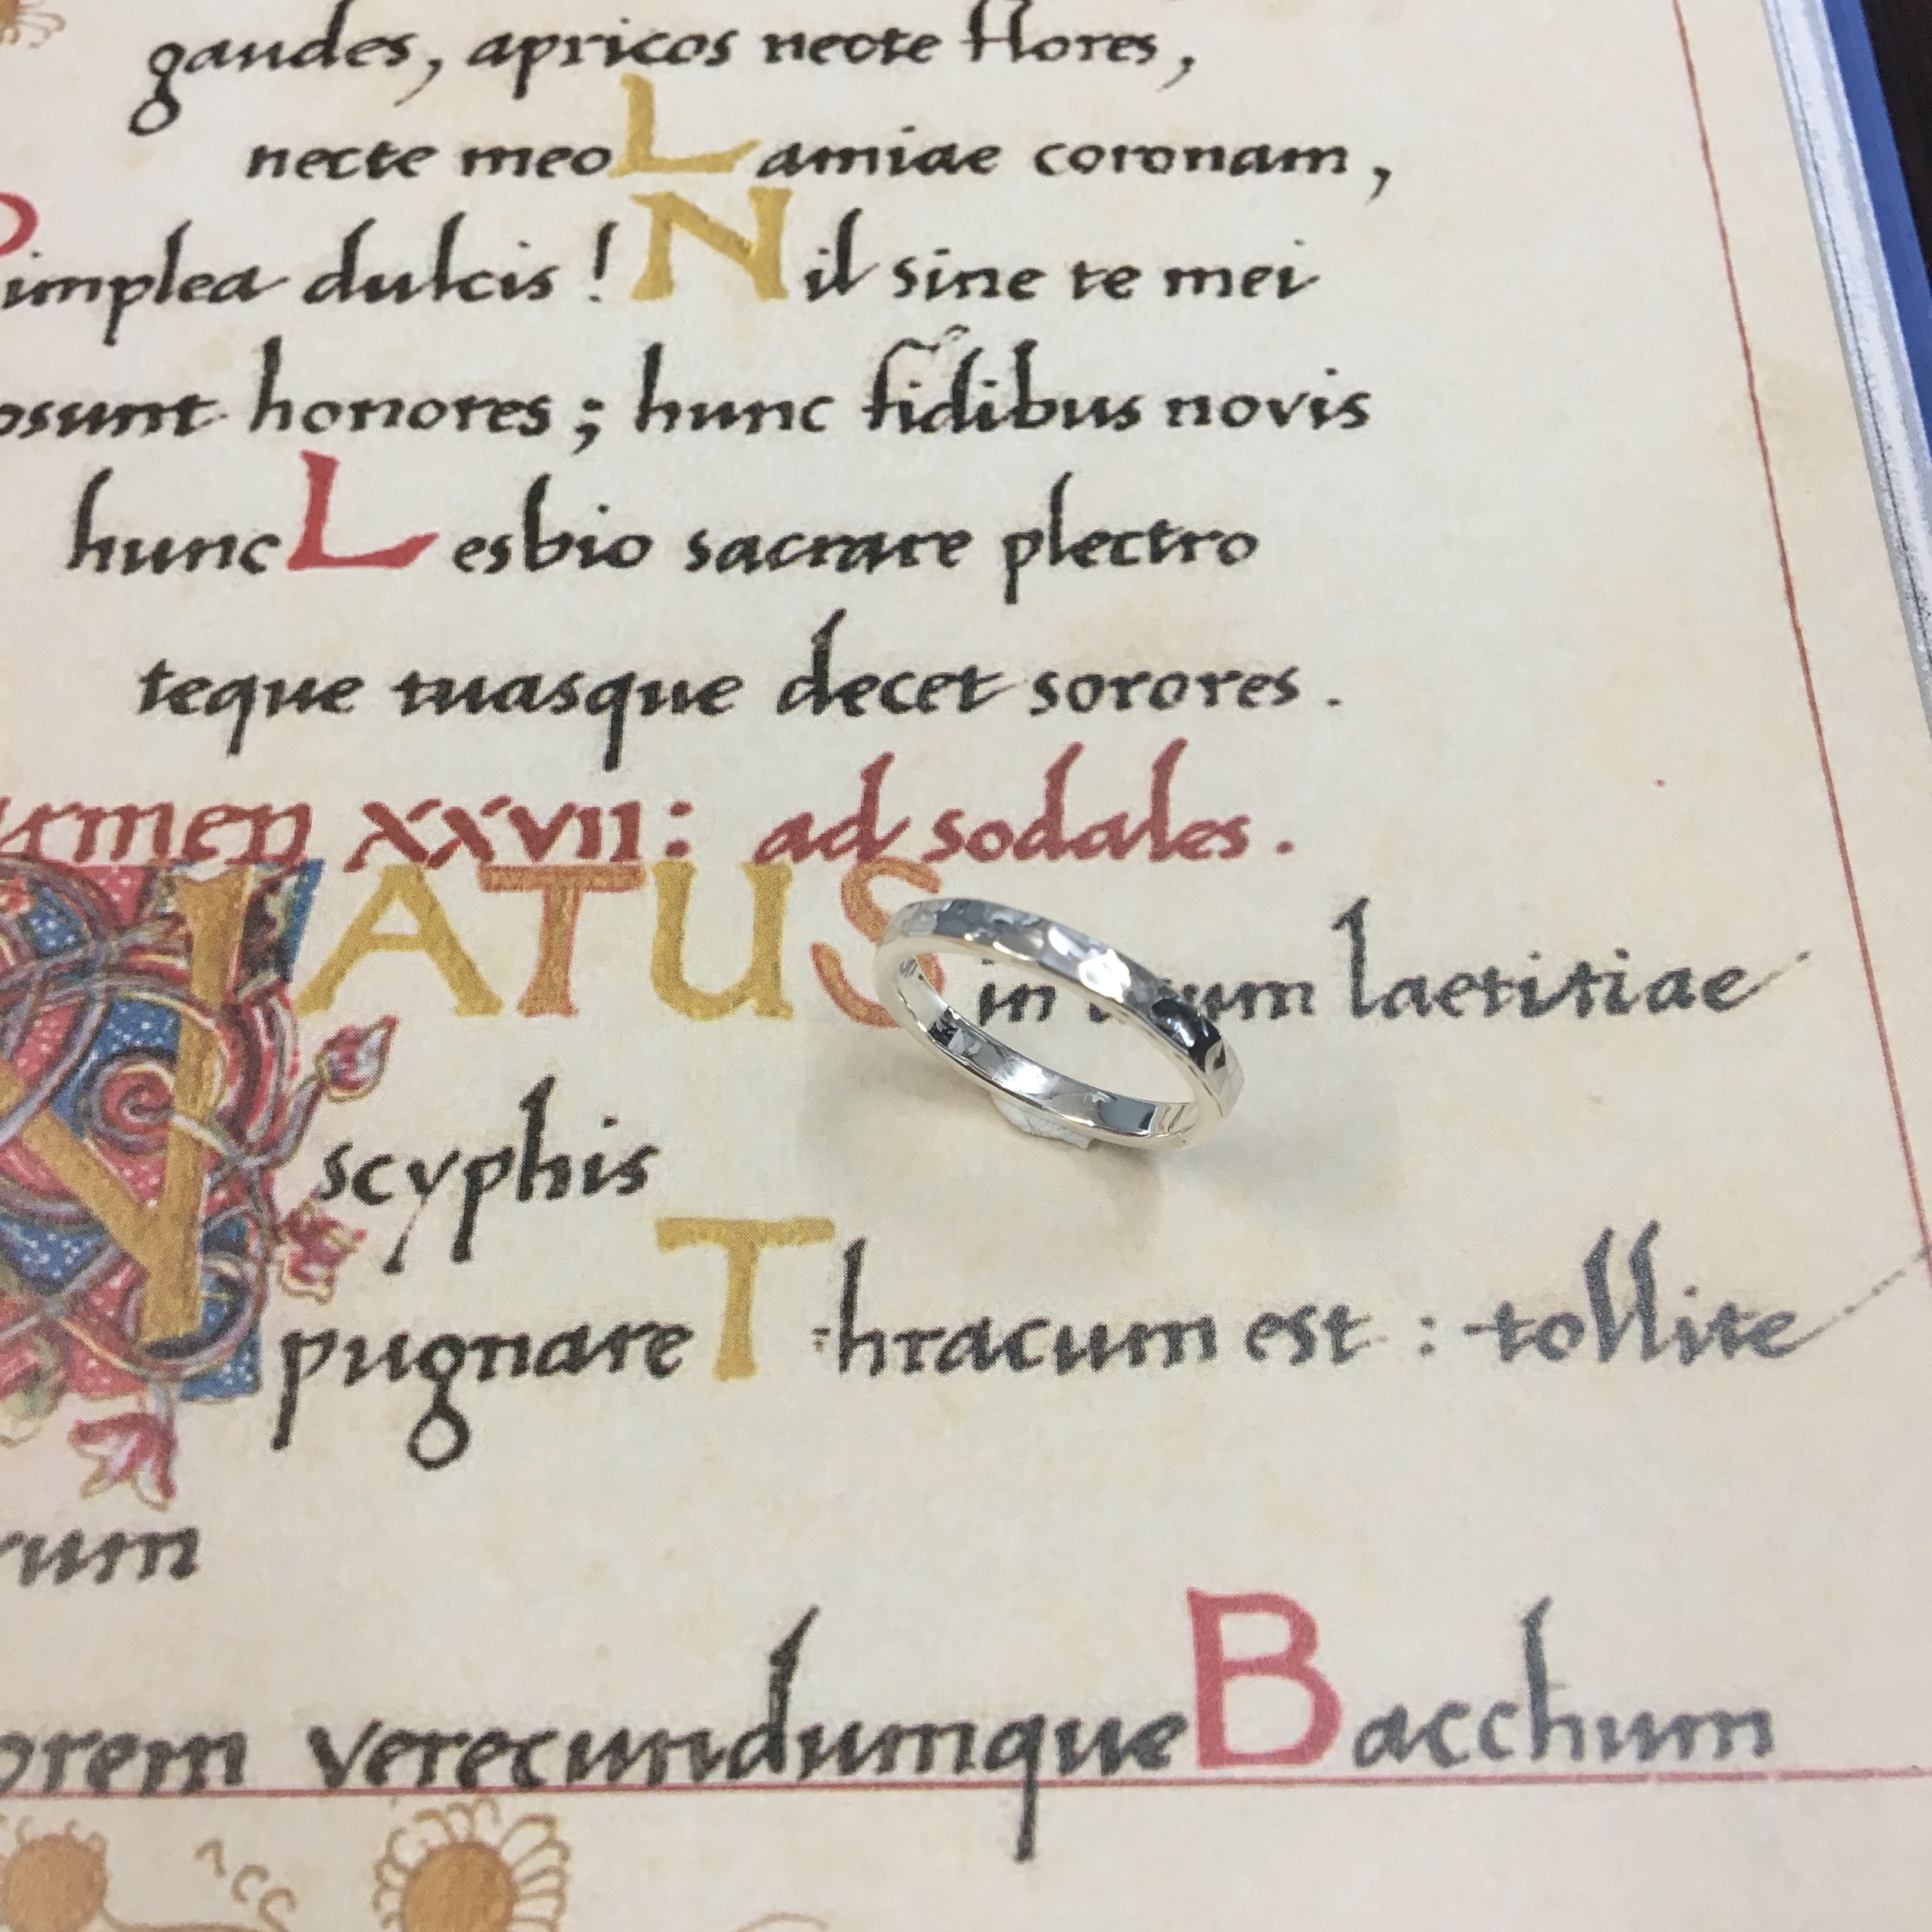 gaudes, apricos necte flores,
necte meo Lamiae coronam,
Pimplea dulcis! Nil sine te mei
osunt honores; hunc fidibus novis
hunc Lesbio sacrare plectro
teque tuasque decet sorores.
armen xxvii: ad sodales.
NATUS in um laetitiae
scyphis
pugnare Thracum est: tollite
rum
orem verecundumque Bacchum